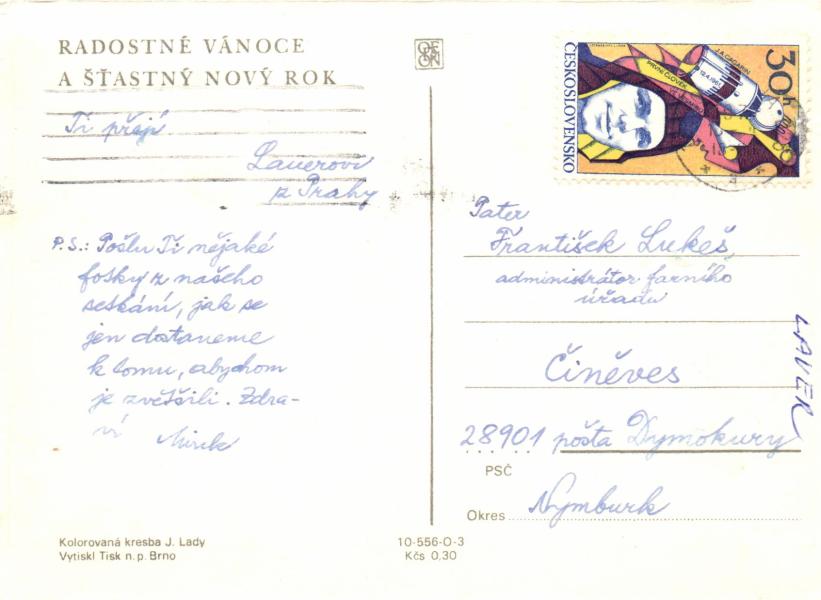 RADOSTNÉ VÁNOCE
A ŠŤASTNÝ NOVÝ ROK
Ti přejí
Lauerovi
z Prahy
P.S.: Pošlu Ti nějaké
fotky z našeho
setkání, jak se
jen dostaneme
k tomu, abychom
je zvětšili. Zdra-
ví Mirek
Kolorovaná kresba J. Lady
Vytiskl Tisk n.p. Brno
10-556-O-3
Kčs 0,30
ČESKOSLOVENSKO
PRVNÍ ČLOVĚK
J.A. GAGARIN
12.4.1961
30h
Pater
František Lukeš
administrátor farního
úřadu
Činěves
28901 pošta Dymokury
PSČ
Okres Nymburk
LAUER